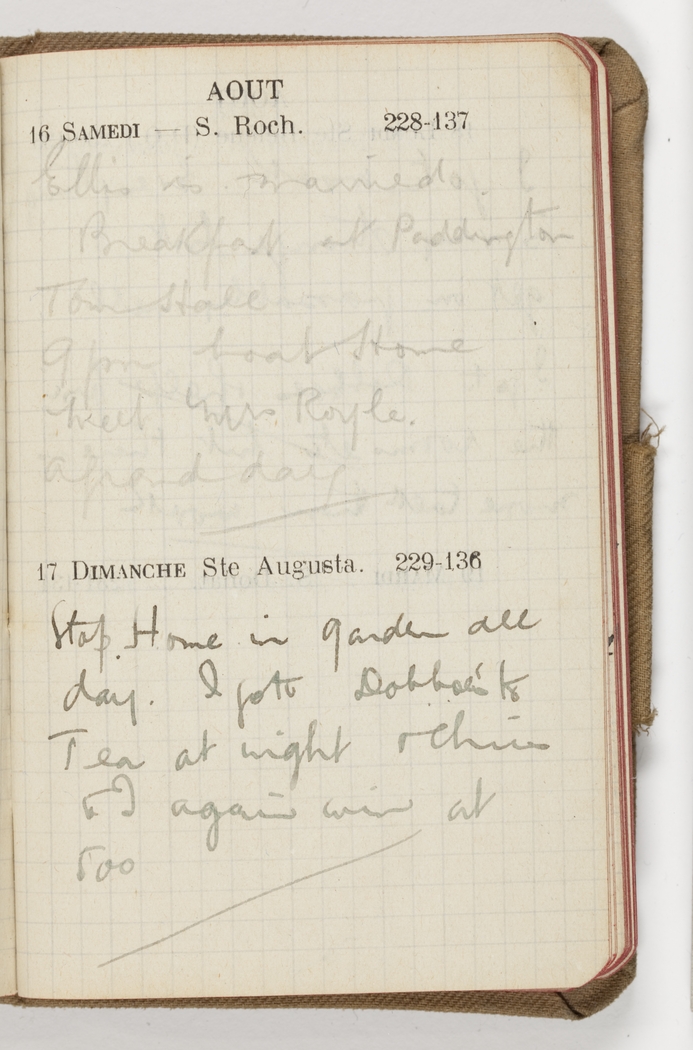 AOUT
16 SAMEDI — S. Roch. 228-137
Ellis is married. I
Breakfast at Paddington
Town Hall
9 pm boat Home
Meet Mrs. Royle.
A grand day
17 DIMANCHE Ste Augusta. 229-136
Stop Home in garden all
day. I go to to
Tea at night
& I again win at
500